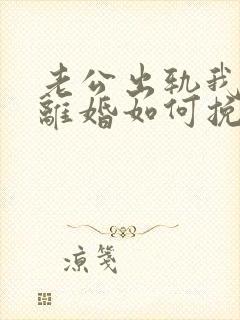 老公出轨我
離婚如何挽
凉笺